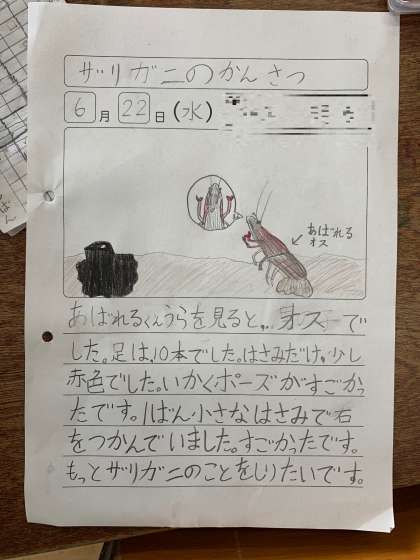 ザリガニのかんさつ
6月22日(水)
あばれる
オス
あばれるくんうらを見ると、、、オスーで
した。足は、10本でした。はさみだけ、少し
赤色でした。いかくポーズがすごかっ
たです。1ばん小さなはさみで石
をつかんでいました。すごかったです。
もっとザリガニのことをしりたいです。